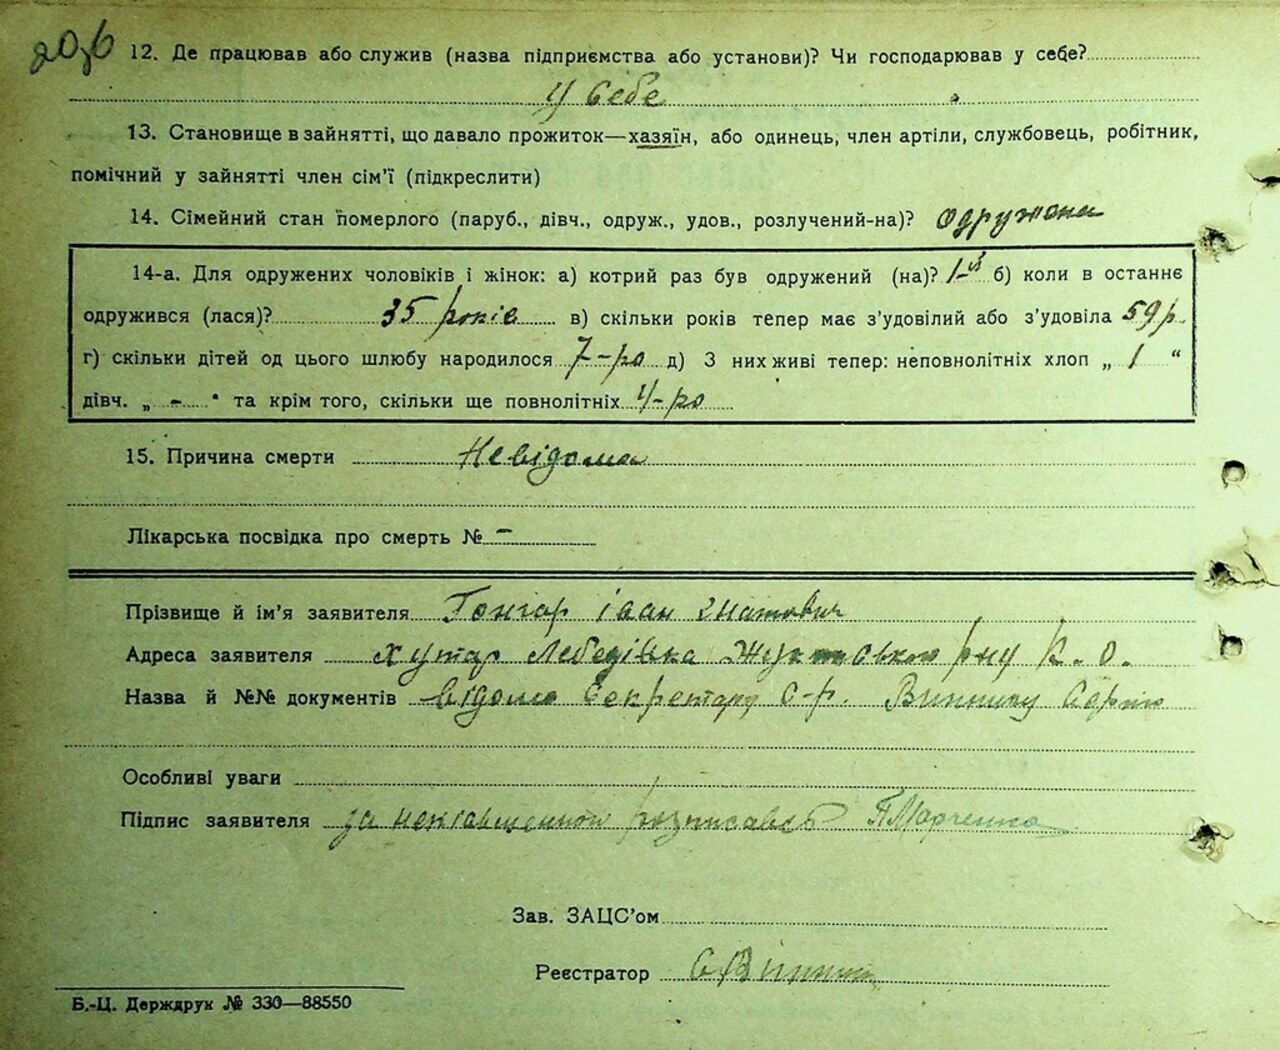 20зб
12. Де працював або служив (назва підприємства або установи)? Чи господарював у себе?
У себе
13. Становище в зайнятті, що давало прожиток—хазяїн, або одинець, член артілі, службовець, робітник,
помічний у зайнятті член сім'ї (підкреслити)
14. Сімейний стан померлого (паруб., дівч., одруж., удов., розлучений-на)? одружена
14-а. Для одружених чоловіків і жінок: а) котрий раз був одружений (на)? 1-й б) коли в останнє
одружився (лася)? 35 років в) скільки років тепер має з'удовілий або з'удовіла 59 р.
г) скільки дітей од цього шлюбу народилося 7-ро д) З них живі тепер: неповнолітніх хлоп „ 1 “
дівч. „ - " та крім того, скільки ще повнолітніх 4-ро
15. Причина смерти Невідома
Лікарська посвідка про смерть № -
Прізвище й ім'я заявителя Гончар Іван
Адреса заявителя хутар Лебедівка р-ну К. О.
Назва й №№ документів відомо Секретару С-р.
Особливі уваги
Підпис заявителя за розписавсь ПМарченко
Зав. ЗАЦС'ом
Реєстратор
Б.-Ц. Держдрук № 330—88550